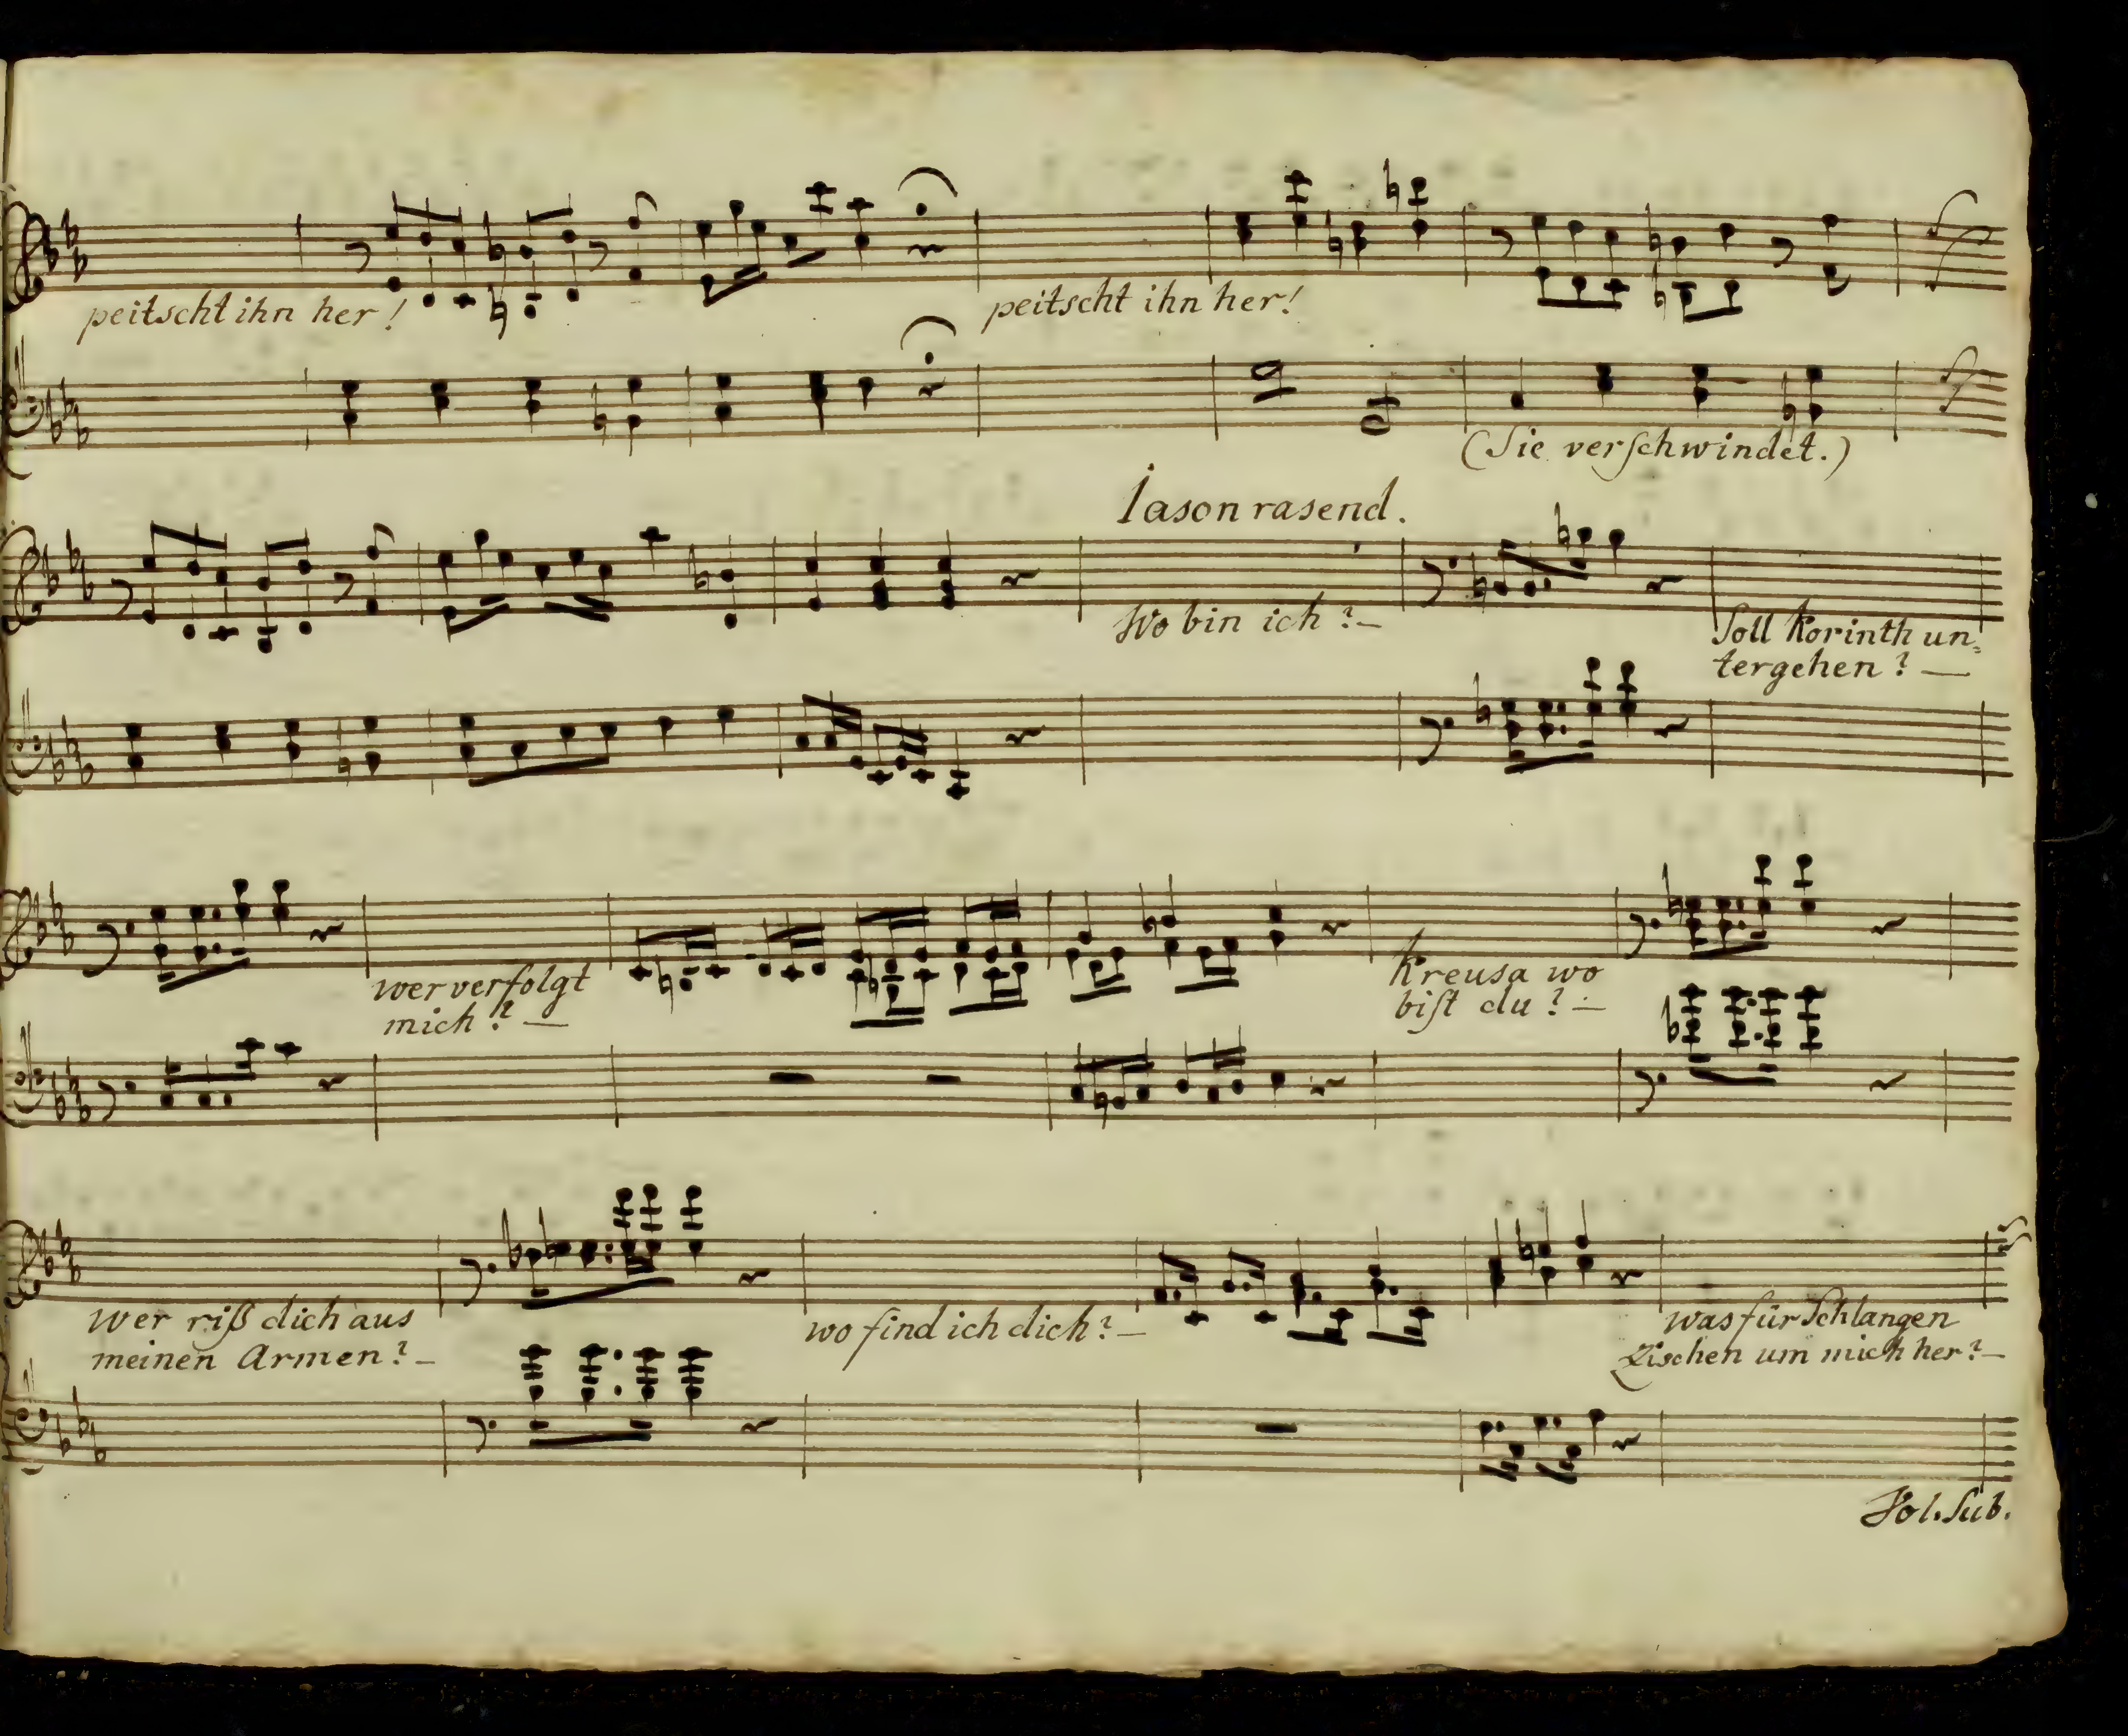 peitscht ihn her!
peitscht ihn her!
(Sie verſchwindet.)
Iason rasend.
Wo bin ich? —
Soll Korinth un⸗
tergehen? —
wer verfolgt
mich? —
Kreusa wo
biſt du? —
Wer riß dich aus
meinen Armen? —
wo find ich dich? —
was für Schlangen
Zischen um mich her? —
Vol. Sub.